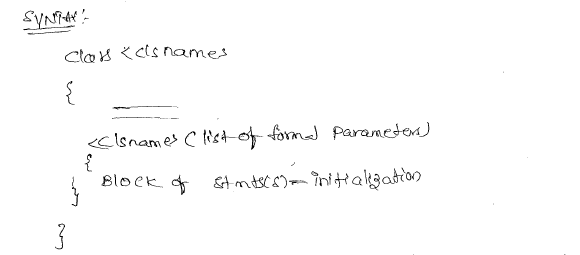 SYNTAX:-
class <clsname>
{
<clsname> (list of formal parameters)
{
Block of stmts(s) - initialization
}
}